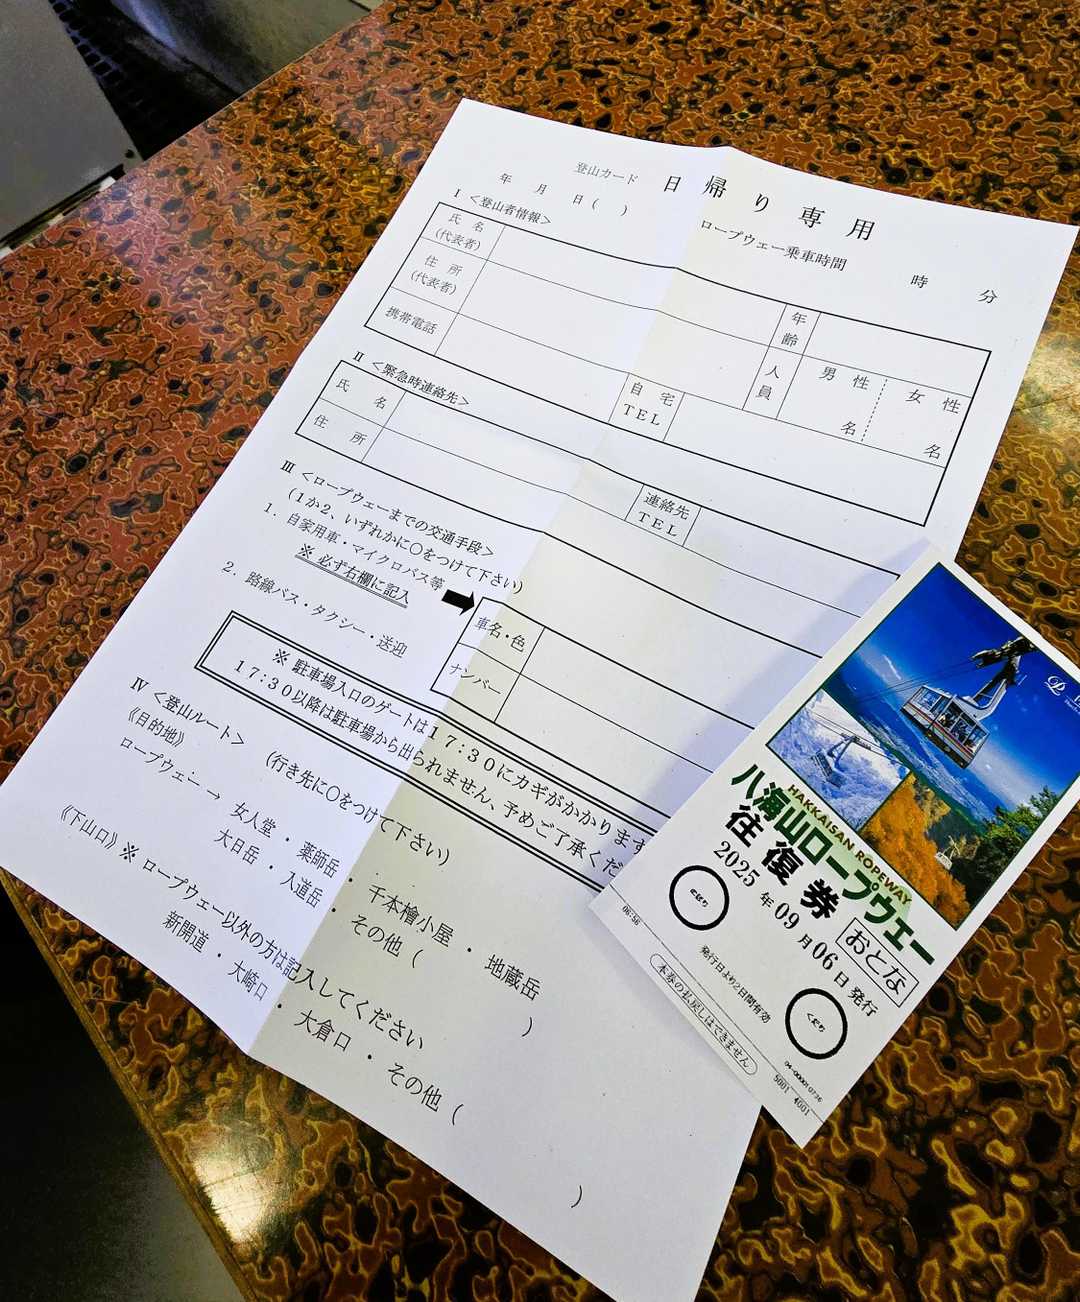 登山カード 日帰り専用
年 月 日( )
ロープウェー乗車時間 時 分
Ⅰ <登山者情報>
氏名
(代表者)
年齢
住所
(代表者)
人員
男性
名
女性
名
携帯電話
自宅
TEL
Ⅱ <緊急時連絡先>
氏名
住所
連絡先
TEL
Ⅲ <ロープウェーまでの交通手段>
(1か2、いずれかに○をつけて下さい)
1. 自家用車・マイクロバス等
※ 必ず右欄に記入
車名・色
ナンバー
2. 路線バス・タクシー・送迎
※ 駐車場入口のゲートは17:30にカギがかかります
17:30以降は駐車場から出られません、予めご了承くだ
Ⅳ <登山ルート> (行き先に○をつけて下さい)
《目的地》
ロープウェー → 女人堂・薬師岳・千本檜小屋・地蔵岳
大日岳・入道岳・その他( )
《下山口》※ ロープウェー以外の方は記入してください
新開道・大崎口・大倉口・その他( )
八海山ロープウェー
HAKKAISAN ROPEWAY
往復券
おとな
2025年09月06日発行
発行日より2日間有効
本券の払戻しはできません
くだり
06:56
04-00001 0736
5001 4001